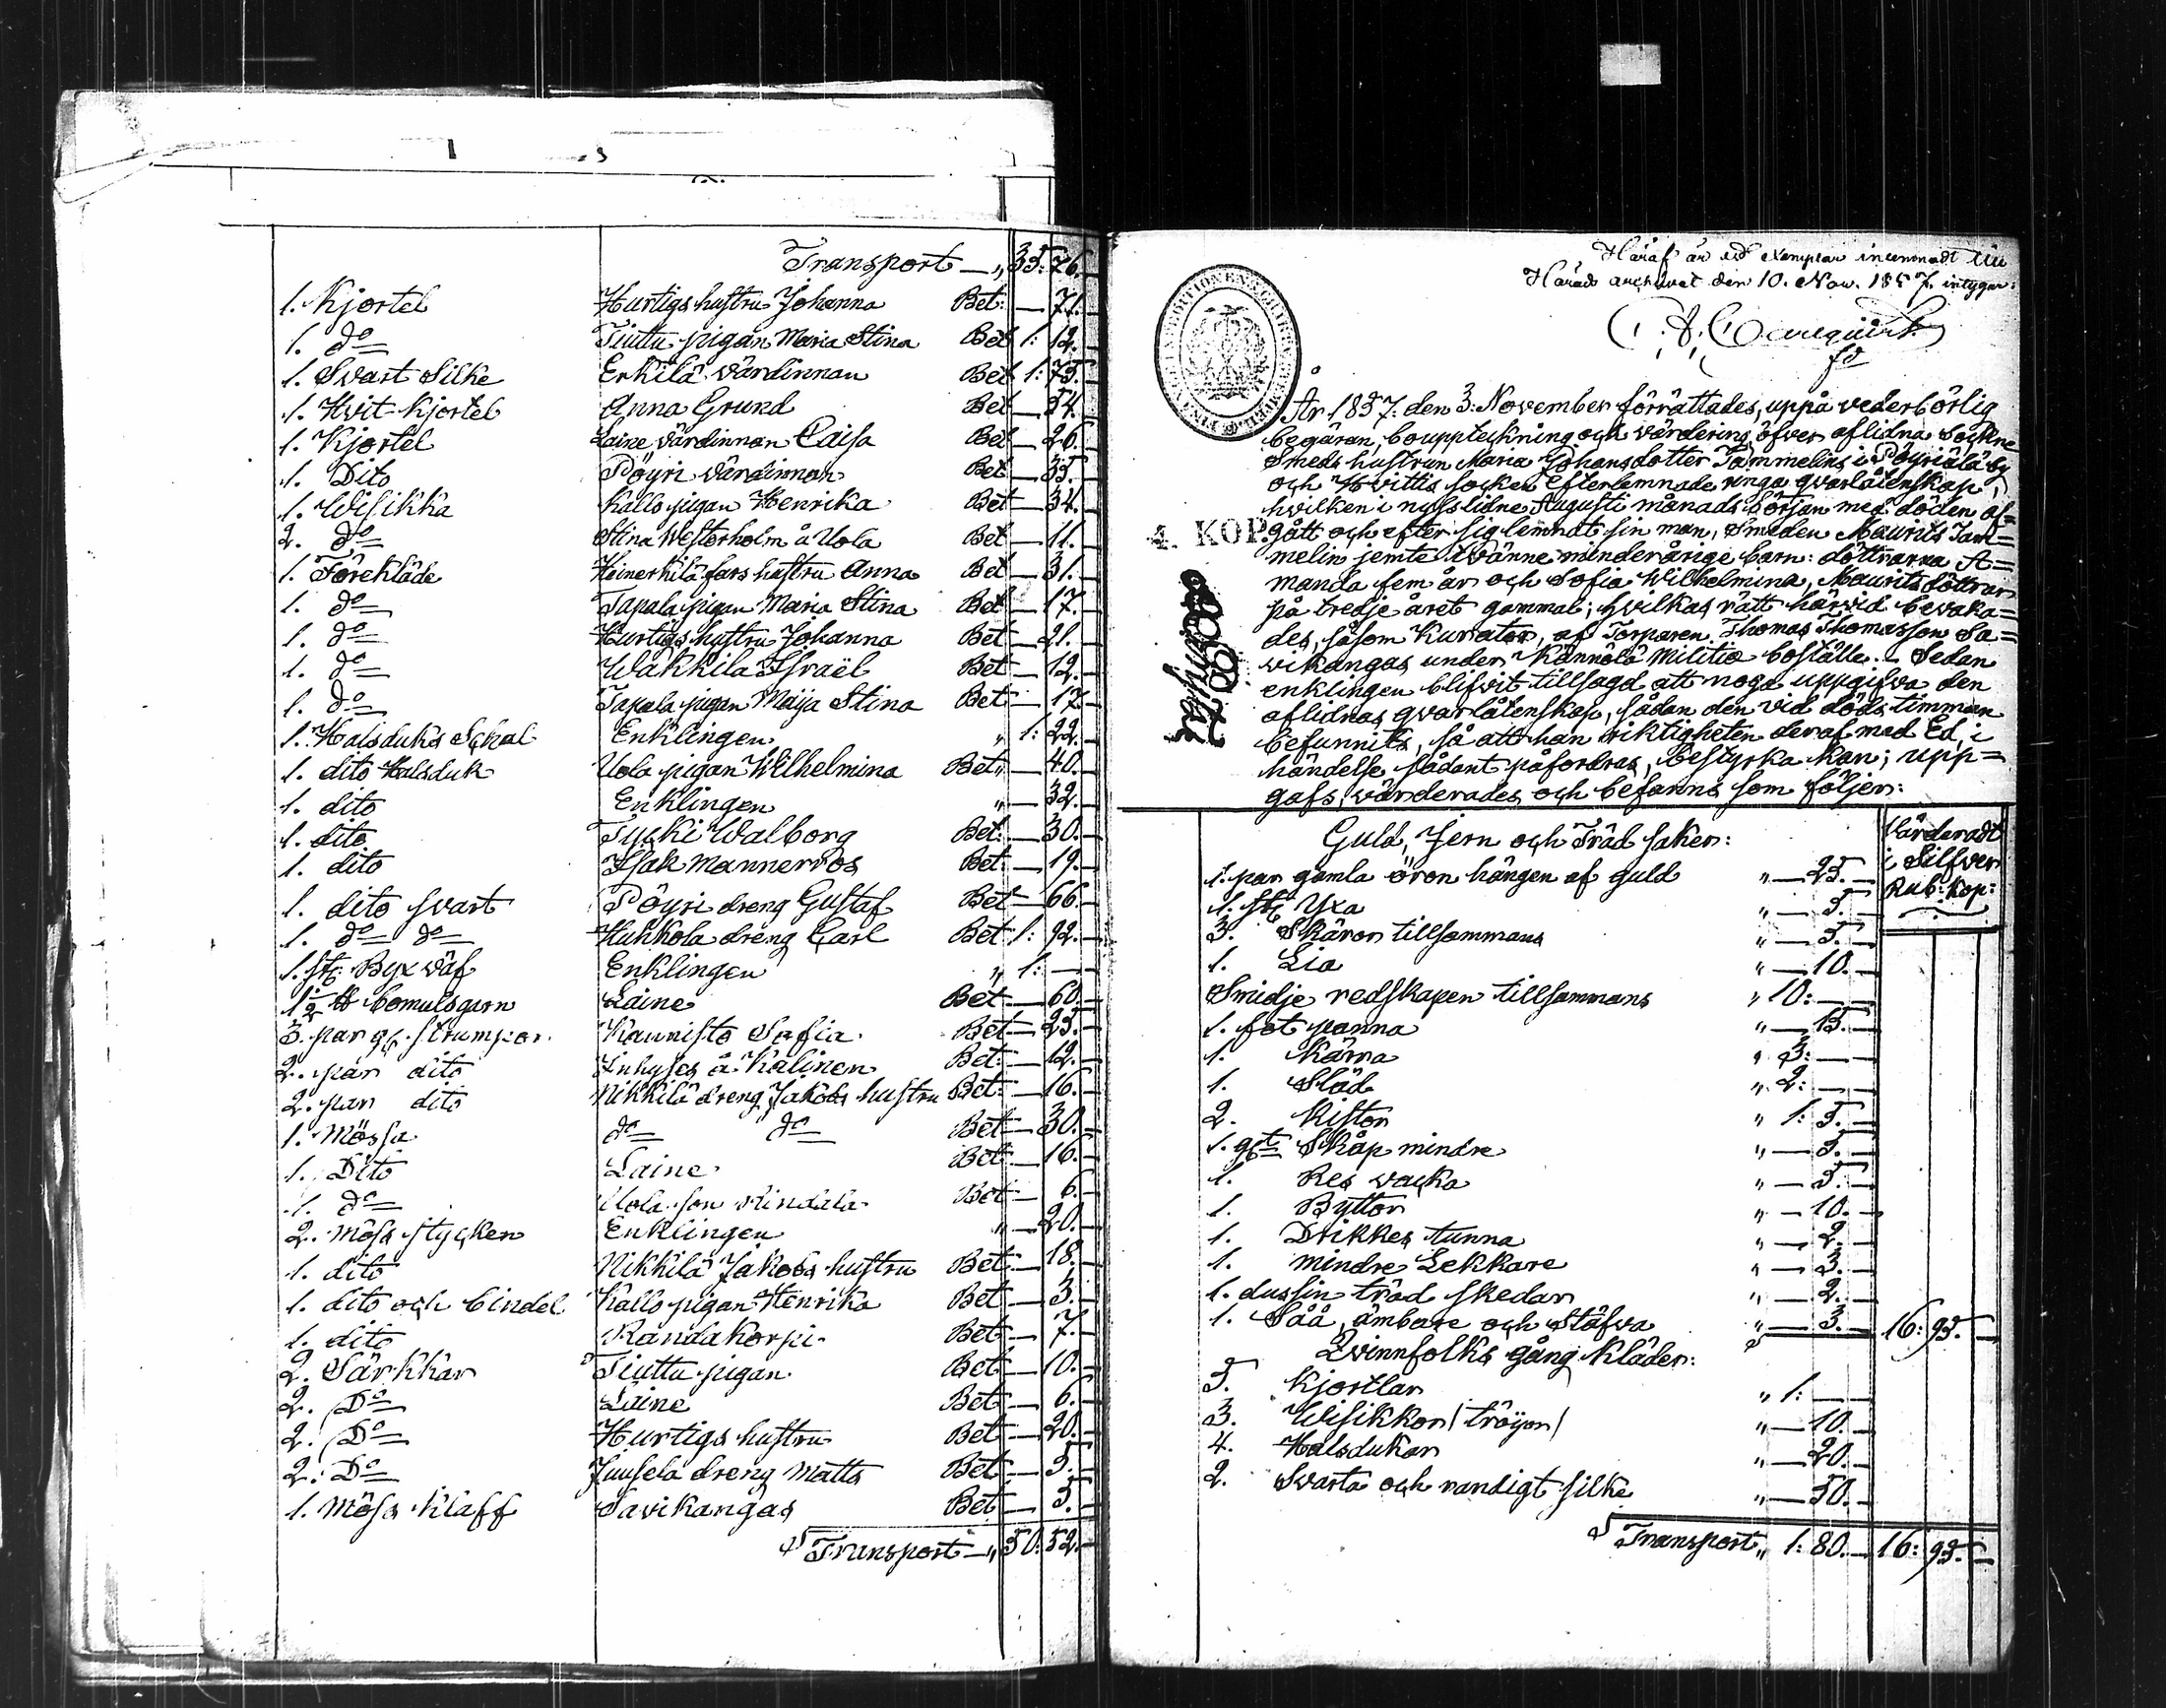 Transport — „ 35: 76. —
1. Kjortel Hurtigs hustru Johanna Bet: — 71. —
1. d:o Tiuttu pigan Maria Stina Bet 1: 12. —
1. Svart Silke Erkilä värdinnan Bet 1: 75. —
1. Hvit kjortel Anna Grund Bet — 54. —
1. Kjortel Laine värdinnan Caisa Bet — 26. —
1. Dito Pöyri värdinnan Bet — 35. —
1. Wisikka Kallo pigan Henrika Bet — 34. —
2. d:o Stina Westerholm å Uola Bet — 11. —
1. Förekläde Heinerkilä fars hustru Anna Bet — 31. —
1. d:o Tapala pigan Maria Stina Bet — 17. —
1. d:o Hurtigs hustru Johanna Bet — 21. —
1. d:o Wäkkilä Israël Bet — 12. —
1. d:o Tapala pigan Maija Stina Bet — 17. —
1. Halsduks Schal Enklingen „ 1: 22. —
1. dito Halsduk Uola pigan Wilhelmina Bet „ — 40. —
1. dito Enklingen „ — 32. —
1. dito Tycki Walborg Bet: — 30. —
1. dito Isak Mannervos Bet: — 19. —
1. dito svart Pöyri dreng Gustaf Bet — 66. —
1. d:o d:o Huhkola dreng Carl Bet 1: 92. —
1. st: Byx väf Enklingen „ 1: — —
1 1/2 ℔ bomulsgarn Laine Bet — 60. —
3. par gl. strumpor. Kaunisto Sofia Bet — 25. —
2. par dito Inhyses å Kalinen Bet: — 12. —
2. par dito Nikkilä dreng Jakobs hustru Bet: — 16. —
1. Mössa d:o d:o Bet — 30. —
1. Dito Laine Bet — 16. —
1. d:o Uola son Bet — 6. —
2. Möss stycken Enklingen „ — 20. —
1. dito Nikkilä Jakobs hustru Bet — 18. —
1. dito och bindel Kallo pigan Henrika Bet — 3. —
1. dito Randakorpi Bet — 7. —
2. Särkkar Tiuttu pigan Bet — 10. —
2. D:o Laine Bet — 6. —
2. D:o Hurtigs hustru Bet — 20. —
2. D:o Juusela dreng Matts Bet — 5. —
1. Möss klaff Savikangas Bet — 5. —
Transport — „ 50: 52. —
Häraf är ett exemplar inlemnadt till
Härads archivet den 10. Nov. 1857. intygar:
År 1857. den 3. November förrättades, uppå vederbörlig
begäran, bouppteckning och värdering öfver aflidna Sockne
Smeds hustrun Maria Johansdotter Tammelins i Pöyriälä by
och Hvittis socken efterlemnade ringa qvarlåtenskap,
hvilken i nysslidne Augusti månads början med döden af=
4. KOP.
gått och efter sig lemnat sin man, Smeden Maurits Tam=
melin jemte tvänne minderårige barn: döttrarna A=
manda fem år och Sofia Wilhelmina, Mauritsdöttrar
på tredje året gammal; hvilkas rätt härvid bevaka=
des, såsom Kurator, af Torparen Thomas Thomasson Sa=
vikangas under Kännölä Militie boställe. – Sedan
enklingen blifvit tillsagd att noga uppgifva den
aflidnas qvarlåtenskap, sådan den vid döds timman
befunnits, så att han riktigheten deraf med Ed, i
händelse sådant påfordras, bestyrka kan; upp=
gafs, värderades och befanns som följer:
Guld, Jern och Träd saker: Värderadt i Silfver Rub: kop:
1. par gamla öron hängen af guld „ — 25. —
1. st: Yxa „ — 5. —
3. Skäror tillsammans „ — 5. —
1. Lia „ — 10. —
Smidje redskapen tillsammans „ 10: — —
1. fot panna „ — 15. —
1. Kärra „ 3: — —
1. Släd „ 2: — —
2. Kistor „ 1: 5. —
1. gl. Skåp mindre „ — 5. —
1. Res vacka „ — 5. —
1. Byttor „ — 10. —
1. Drikkes tunna „ — 2. —
1. mindre Lekkare „ — 3. —
1. dussin träd skedar „ — 2. —
1. Såå, ämbare och Stäfva „ — 3. — 16: 95. —
Qvinnfolks gång kläder:
5. Kjortlar „ 1: — —
3. Wisikkor / tröjor / „ — 10. —
4. Halsdukar „ — 20. —
2. Svarta och randigt silke „ — 50. —
Transport „ 1: 80. — 16: 95. —